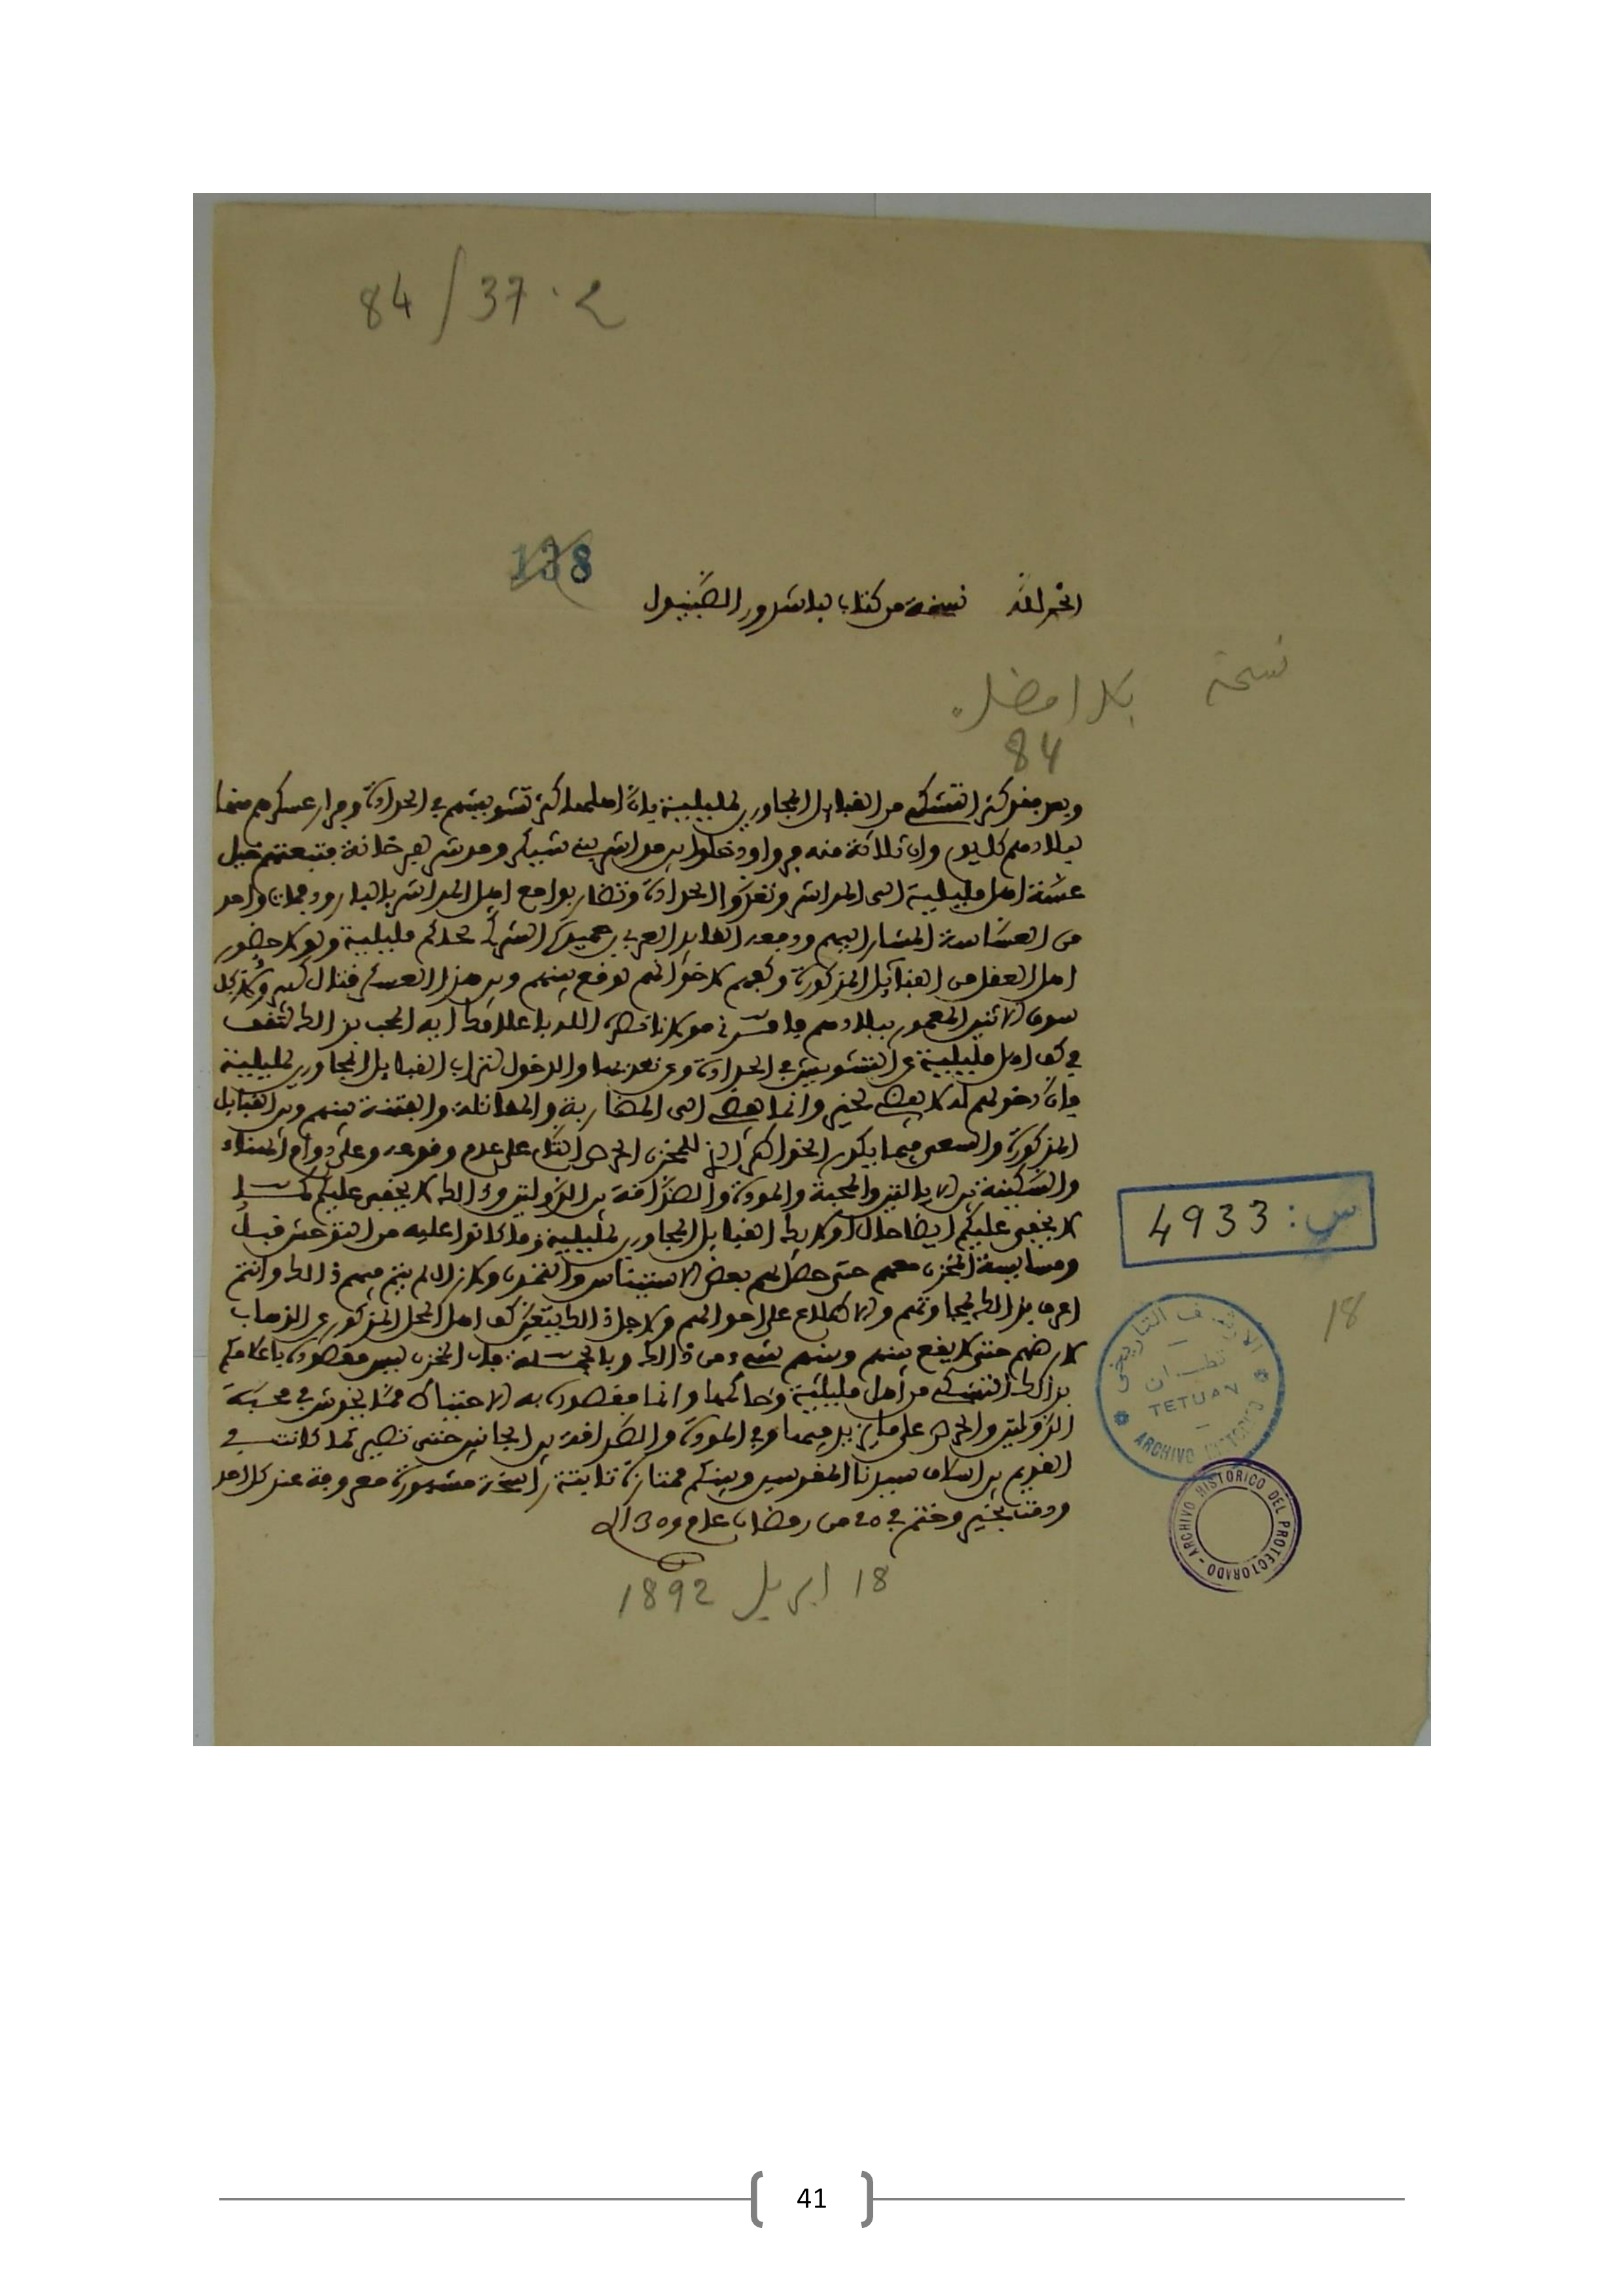 84 / 37 · ح
138
الحمد لله نسخة من كتاب لباشدور الصبنيول
نسخة بلا امضاء
84
وبعد فقد كثر التشكي من القبايل المجاورين لمليلية بان اهلها كثر تشويشهم في الحدادة وفرار عسكرهم منها
لبلادهم كل يوم وان ثلاثة منه فروا ودخلوا بين مداشر بني شيكر ومدشر فرخانة فتبعتهم خيل
عشة اهل مليلية الى المداشر وتعدوا الحدادة وتضاربوا مع اهل المداشر بالبارود ومات واحد
من العساسة المشار اليهم ودفعه القايد العربي بن حميدة الشركي لحاكم مليلية ولولا حضور
اهل العقل من القبائل المذكورة وكفهم لاخوانهم لوقع بينهم وبين هذا العسكر قتال كبير
سوق الاثنين المعمور ببلادهم فامرني مولانا نصره الله باعلامكم ايه المحب بذالك لتقف
في كف اهل مليلية عن التشويش في الحدادة وعن تعديها والدخول لتراب القبايل المجاورين لمليلية
فان دخولهم له لا يفضي لخير وانما يفضي الى المضاربة والمقاتلة والفتنة بينهم وبين القبايل
المذكورة والسعي فيما يكون المخزن الحرص التام على عدم وقوعه وعلى دوام الهناء
والسكينة بين الايالتين والمحبة والمودة والصداقة بين الدولتين وذالك لا يخفى عليكم كما
لا يخفى عليكم ايضا حال اولايك القبايل المجاورين لمليلية وما كانوا عليه من التوحش قبل
ومسايسة المخزن معهم حتى حصل لهم بعض الاستيناس والتمدن ولا زال لم يتم فيهم ذالك وانتم
اعرف بذالك لمجاورتهم والاطلاع على احوالهم ولاجل ذالك يتعين كف اهل المحل المذكور عن الذهاب
لارضهم حتى لا يقع بينهم وبينهم شيء من ذالك وبالجملة فان المخزن ليس مقصوده باعلامكم
بذالك التشكي من اهل مليلية وحاكمها وانما مقصوده به الاجتناب مما يخوش في محبة
الدولتين والحرص على ما يزيد فيها وفي المودة والصداقة بين الجانبين حتى تصير كما كانت في
القديم بين اسلاف سيدنا المقدسين وبينكم ممتازة ثابتة راسخة مشهورة معروفة عند كل احد
ودمتم بخير وختم في 20 من رمضان عام 1309
18 ابريل 1892
س: 4933
18
الارشيف التاريخي
تطوان
TETUAN
ARCHIVO HISTORICO
ARCHIVO HISTORICO DEL PROTECTORADO
41